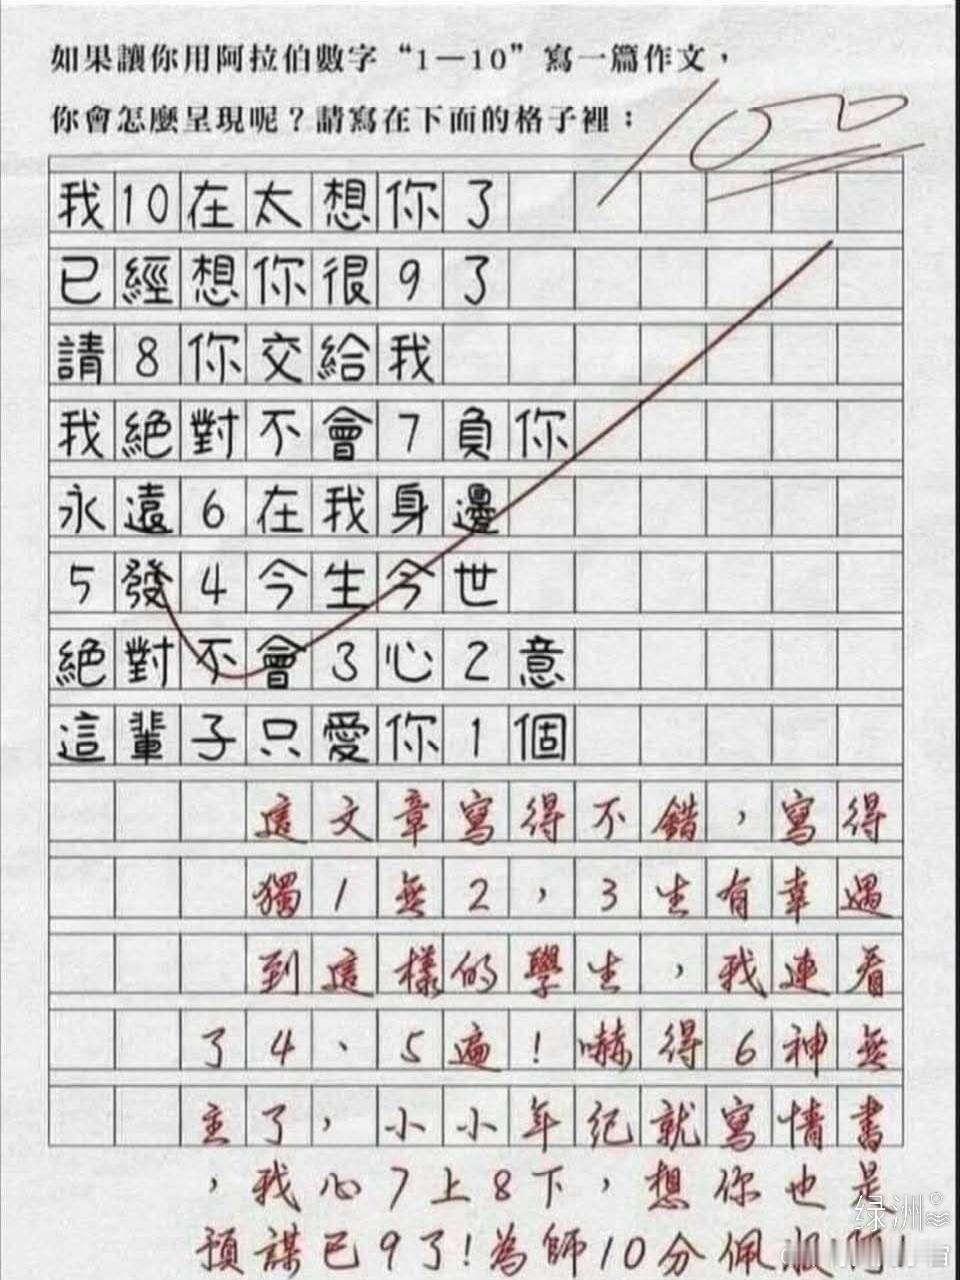 如果讓你用阿拉伯數字“1—10”寫一篇作文，
你會怎麼呈現呢？請寫在下面的格子裡：
100
我10在太想你了
已經想你很9了
請8你交給我
我絕對不會7負你
永遠6在我身邊
5發4今生今世
絕對不會3心2意
這輩子只愛你1個
這文章寫得不錯，寫得
獨1無2，3生有幸遇
到這樣的學生，我連看
了4、5遍！嚇得6神無
主了，小小年紀就寫情書
，我心7上8下，想你也是
預謀已9了！為師10分佩服阿！
绿洲